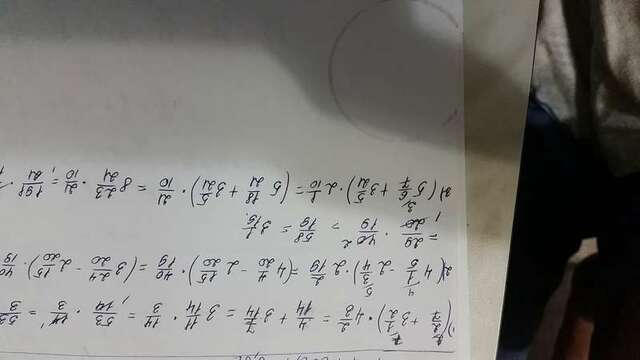 1) (2/7 + 3 1/2) · 4 2/3 = 4/14 + 3 7/14 = 3 11/14 · 14/3 = 53/14 · 14/3 = 53/3
2) (4 1/5 - 2 3/4) · 2 2/19 = (4 4/20 - 2 15/20) · 40/19 = (3 24/20 - 2 15/20) · 40/19
= 29/20 · 40/19 = 58/19 = 3 1/19.
3) (5 6/7 + 3 5/21) · 2 1/10 = (5 18/21 + 3 5/21) · 21/10 = 8 23/21 · 21/10 = 191/21